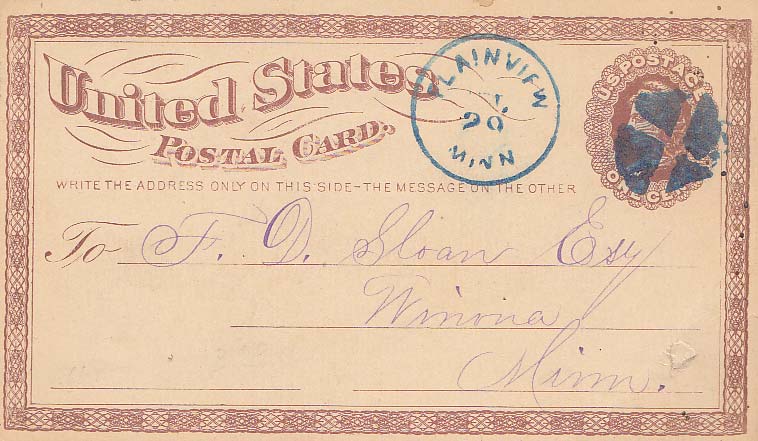 United States
POSTAL CARD.
PLAINVIEW
20
MINN
U.S. POSTAGE
ONE CENT
WRITE THE ADDRESS ONLY ON THIS SIDE-THE MESSAGE ON THE OTHER
To F. D. Sloan Esq
Winona
Minn.